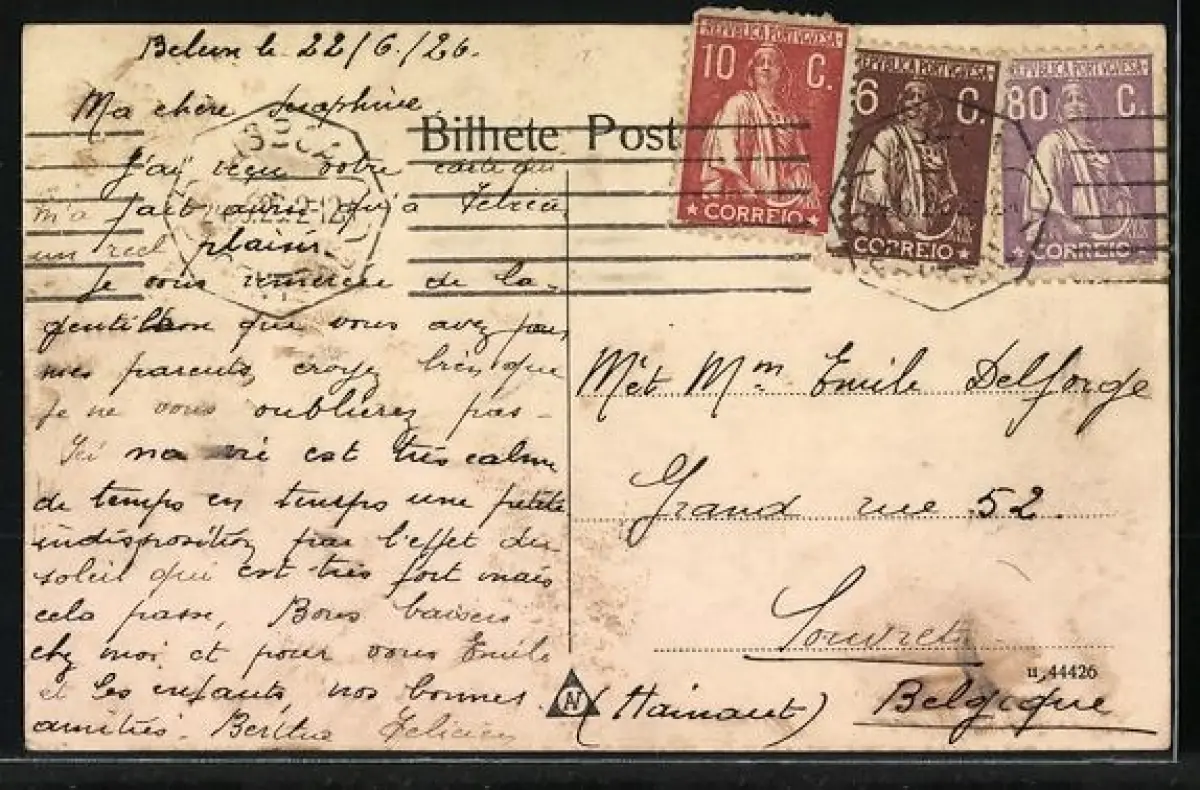 le 22/6./26.
Ma chère Josephine
J'ai reçu votre carte qui
m'a fait ainsi qu'à Felicien
un reel plaisir.
Je vous remercie de la
que vous avez pour
mes parents, croyez bien que
je ne vous oublierez pas -
Ici ma vie est très calme
de temps en temps une petite
indisposition par l'effet du
soleil qui est très fort mais
cela passe, Bons baisers
chez moi et pour vous Emile
et les enfants, nos bonnes
amitiés. Bertha Felicien
Bilhete Post
REPUBLICA PORTUGUESA
10 C.
CORREIO
REPUBLICA PORTUGUESA
6 C.
CORREIO
REPUBLICA PORTUGUESA
80 C.
CORREIO
Mr et Mm Emile Delforge
Grand rue 52.
Souvret
11,44426
(Hainaut) Belgique